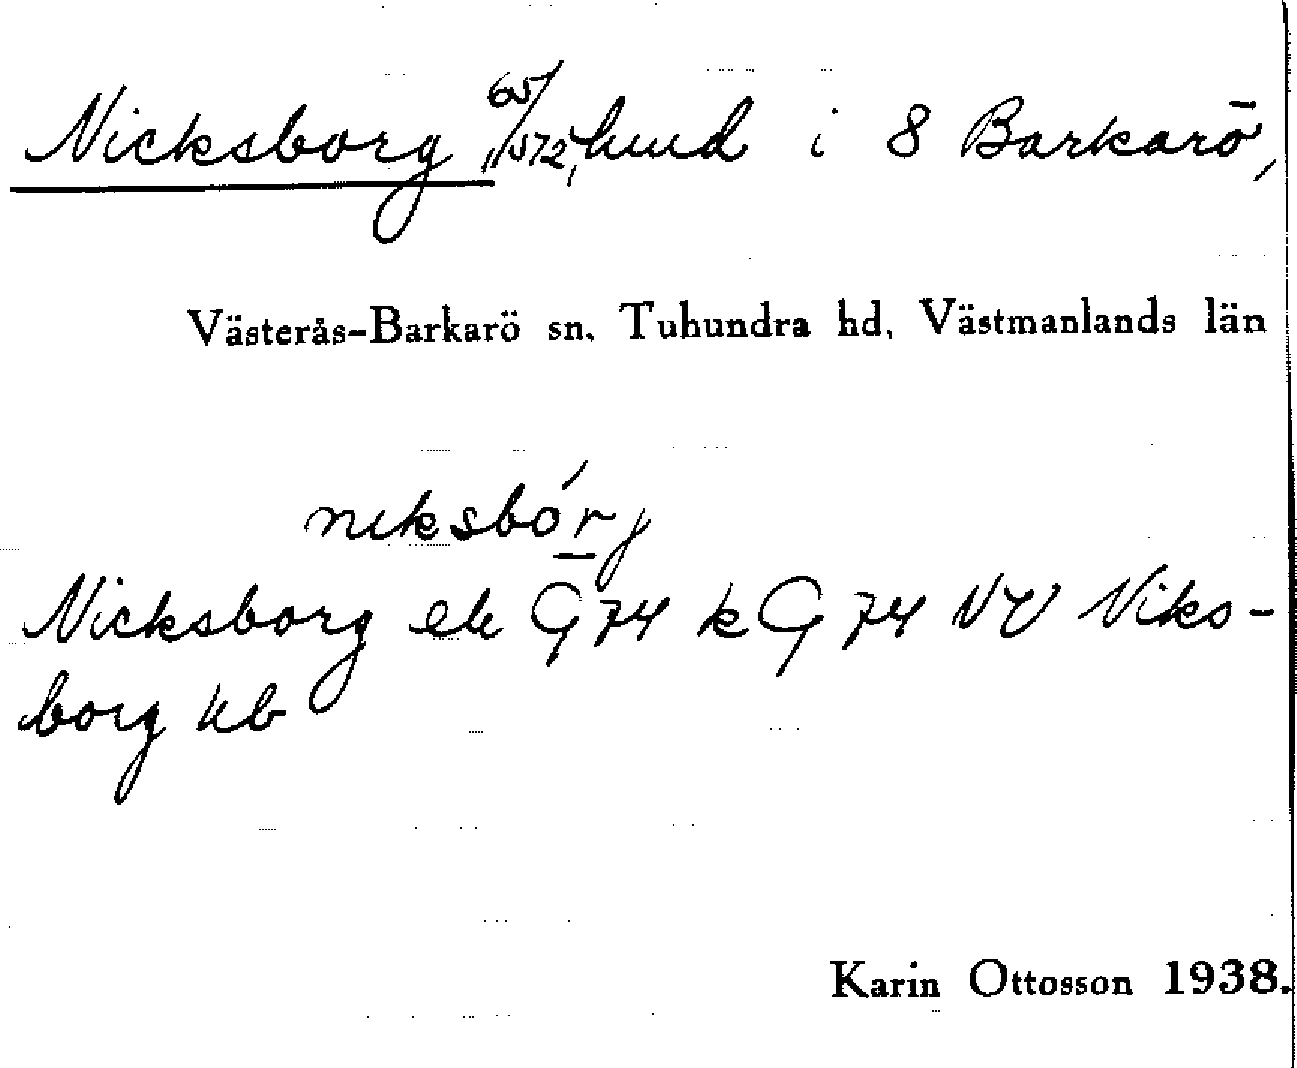 Nicksborg 65/572, hmd i 8 Barkarö,
Västerås-Barkarö sn, Tuhundra hd, Västmanlands län
niksbórj
Nicksborg ek G 74 k G 74 NV Niks-
borg kb
Karin Ottosson 1938.